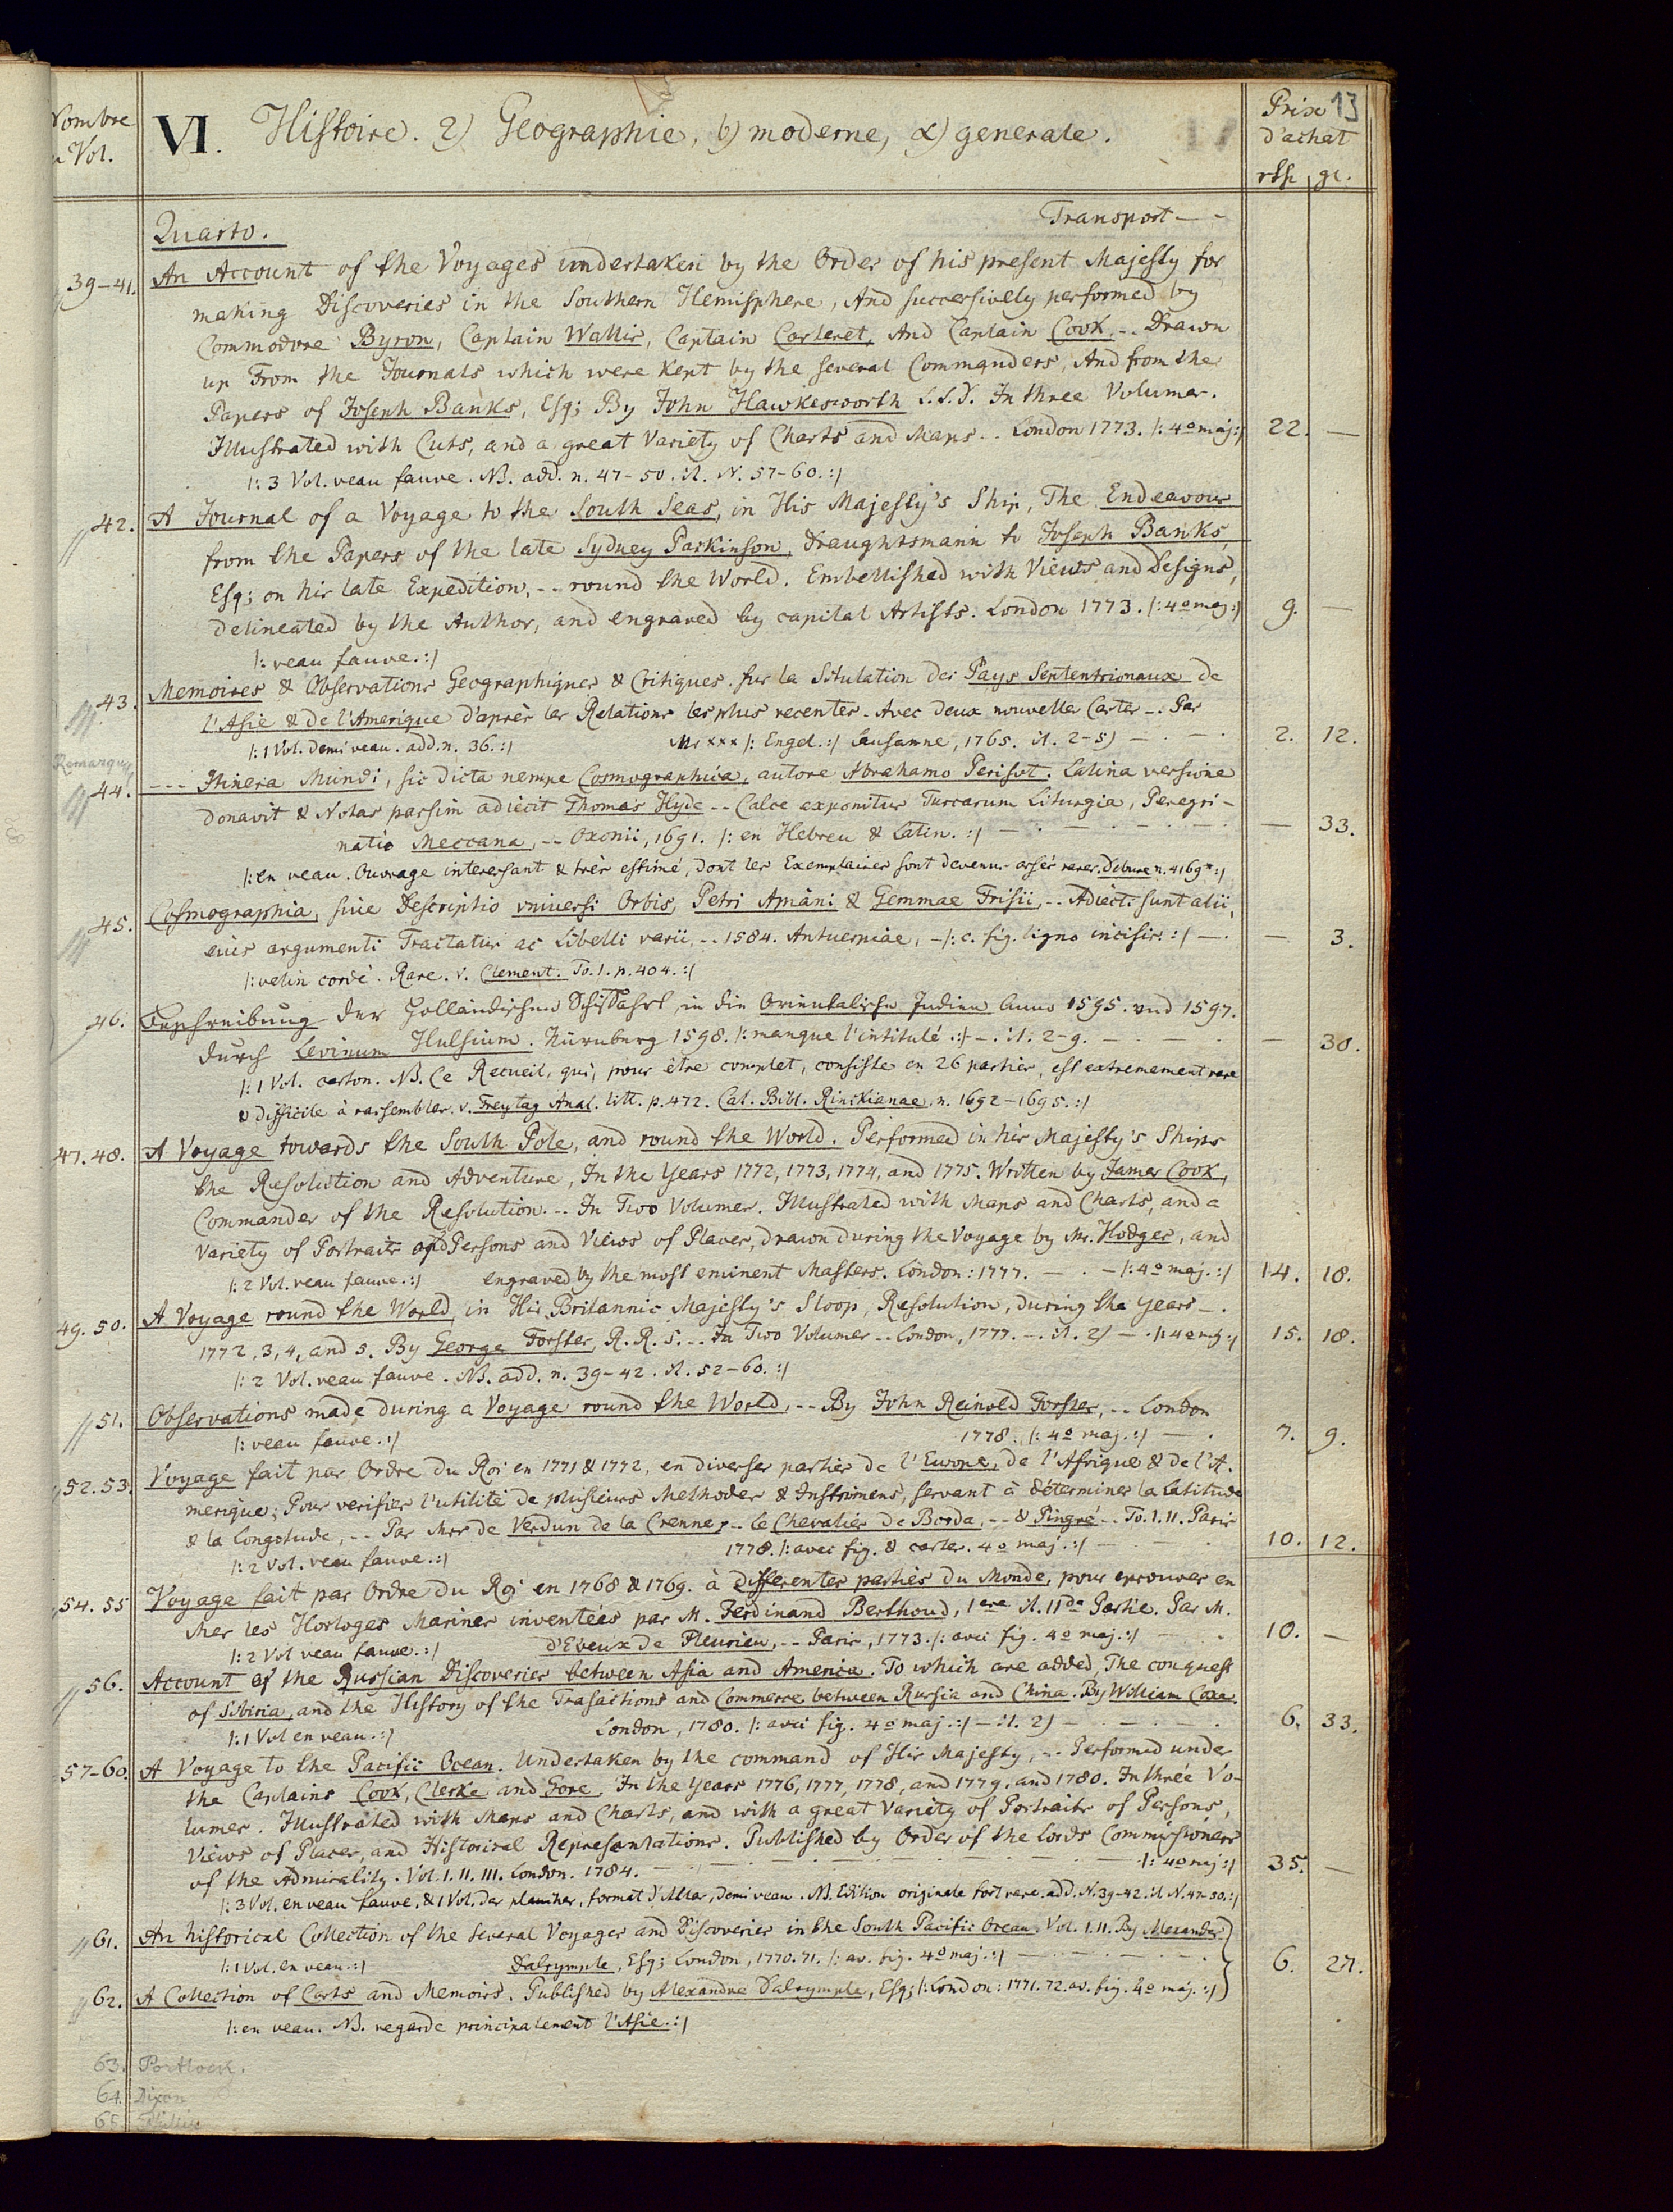 Nombre
Vol.
VI. Histoire. 2) Geographie, b) moderne, α) generale.
Prix 13
d'achat
gr.
Transport - -
Quarto.
39-41. An Account of the Voyages undertaken by the Order of his present Majesty for
making Discoveries in the Southern Hemisphere, And successively performed by
Commodore Byron, Captain Wallis, Captain Carteret, And Captain Cook, -- Drawn
up From the Journals which were kept by the several Commanders, And from the
Papers of Joseph Banks, Esq; By John Hawkesworth L.L.D. In three Volumes.
Illustrated with Cuts, and a great Variety of Charts and Maps.. London 1773. /: 4º maj :/ 22. —
/: 3 Vol. veau fauve. NB. add. n. 47-50. it. N. 57-60. :/
42. A Journal of a Voyage to the South Seas, in His Majesty's Ship, The Endeavour
from the Papers of the late Sydney Parkinson, Draughtsmann to Joseph Banks,
Esq; on his late Expedition, -- round the World. Embellished with Views and Designs,
delineated by the Author, and engraved by capital Artists. London 1773. /: 4º maj :/ 9. —
/: veau fauve. :/
43. Memoires & Observations Geographiques & Critiques. sur la Situlation des Pays Septentrionaux de
l'Asie & de l'Amerique d'après les Relations les plus recentes. Avec deux nouvelles Cartes -. Par
/: 1 Vol. demi veau. add. n. 36. :/ Mr xxx /: Engel. :/ Lausanne, 1765. it. 2-5) — . — . 2. 12.
Remarque
44. --- Itinera Mundi, sic dicta nempe Cosmographia, autore Abrahamo Perisol. Latina versione
donavit & Notas passim adiecit Thomas Hyde -- Calce exponitur Turcarum Liturgia, Peregri-
natio Meccana, -- Oxonii, 1691. /: en Hebreu & Latin. :/ — . — . — — 33.
/: en veau. Ouvrage interessant & très estimé, dont les Exemplaires sont devenus assés rares. Debure n. 4169* :/
45. Cosmographia, siue Descriptio vniuersi Orbis, Petri Apiani & Gemmae Frisii, -- Adiecti sunt alii,
eius argumenti Tractatus ac Libelli varii, -- 1584. Antuerpiae, - /: c. fig. ligno incisis. :/ — . — 3.
/: velin cordé. Rare. v. Clement. To. 1. p. 404. :/
46. Beschreibung der Holländischen Schiffahrt in die Orientalische Indien Anno 1595. und 1597.
durch Levinum Hulsium. Nürnburg 1598. /: manque l'intitulé. :/ -. it. 2-9. — . — . — 30.
/: 1 Vol. carton. NB. Ce Recueil, qui, pour être complet, consiste en 26 parties, est extremement rare
& difficile à rassembler. v. Freytag Anal. litt. p. 472. Cat. Bibl. Rinckianae. n. 1692-1695. :/
47. 48. A Voyage towards the South Pole, and round the World. Performed in his Majesty's Ships
the Resolution and Adventure, In the Years 1772, 1773, 1774, and 1775. Written by James Cook,
Commander of the Resolution. -- In Two Volumes. Illustrated with Maps and Charts, and a
Variety of Portraits of Persons and Views of Places, drawn during the Voyage by Mr. Hodges, and
/: 2 Vol. veau fauve. :/ engraved by the most eminent Masters. London: 1777. — . — /: 4º maj. :/ 14. 18.
49. 50. A Voyage round the World, in His Britannic Majesty's Sloop, Resolution, during the Years -.
1772, 3, 4, and 5. By George Forster, R. R. S. -- In Two Volumes -- London, 1777. -. it. 2) — . /: 4º maj :/ 15. 18.
/: 2 Vol. veau fauve. NB. add. n. 39-42. it. 52-60. :/
51. Observations made during a Voyage round the World, -- By John Reinold Forster, -- London
/: veau fauve. :/ 1778. /: 4º maj. :/ — . 7. 9.
52. 53. Voyage fait par Ordre du Roi en 1771 & 1772, en diverses parties de l'Europe, de l'Afrique & de l'A-
merique; Pour verifier l'utilité de plusieurs Methodes & Instrumens, servant à déterminer la Latitude
& la Longotude, -- Par Mrs de Verdun de la Crenne, -- le Chevalier de Borda, -- & Pingré -- To. I. II. Paris
/: 2 Vol. veau fauve. :/ 1778. /: avec fig. & cartes. 4º maj. :/ — . — . 10. 12.
54. 55 Voyage fait par Ordre du Roi en 1768 & 1769. à differentes parties du Monde, pour eprouver en
Mer les Horloges Marines inventées par M. Ferdinand Berthoud, 1ere it. IIde Partie. Par M.
/: 2 Vol veau fauve. :/ d'Eveux de Fleurieu, -- Paris, 1773. /: avec fig. 4º maj. :/ — . 10. —
56. Account of the Russian Discoveries between Asia and America. To which are added, The conquest
of Sibiria, and the History of the Trasactions and Commerce between Russia and China. By William Coxe.
/: 1 Vol en veau. :/ London, 1780. /: avec fig. 4º maj. :/ - it. 2) — . — . — . 6. 33.
57-60. A Voyage to the Pacific Ocean. Undertaken by the command of His Majesty, -- Performed under
the Captains Cook, Clerke and Gore. In the Years 1776, 1777, 1778, and 1779. and 1780. In three Vo-
lumes. Illustrated with Maps and Charts, and with a great Variety of Portraits of Persons,
Views of Places, and Historical Representations. Published by Order of the Lords Commissioners
of the Admirality. Vol. I. II. III. London. 1784. — . — . — . — /: 4º maj :/ 35. —
/: 3 Vol. en veau fauve, & 1 Vol. des planches, format d'Atlas, demi veau. NB. Edition originale fort rare. add. N. 39-42. it N. 47-50. :/
61. An historical Collection of the several Voyages and Discoveries in the South Pacific Ocean. Vol. I. II. By Alexander
/: 1 Vol. en veau. :/ Dalrymple, Esq; London, 1770. 71. /: av. fig. 4º maj. :/ — . — . — . 6. 27.
62. A Collection of Carts and Memoirs. Published by Alexandre Dalrymple, Esq; /: London: 1771. 72. av. fig. 4º maj. :/
/: en veau. NB. regarde principalement l'Asie. :/
63. Portlock.
64. Dixon
65.